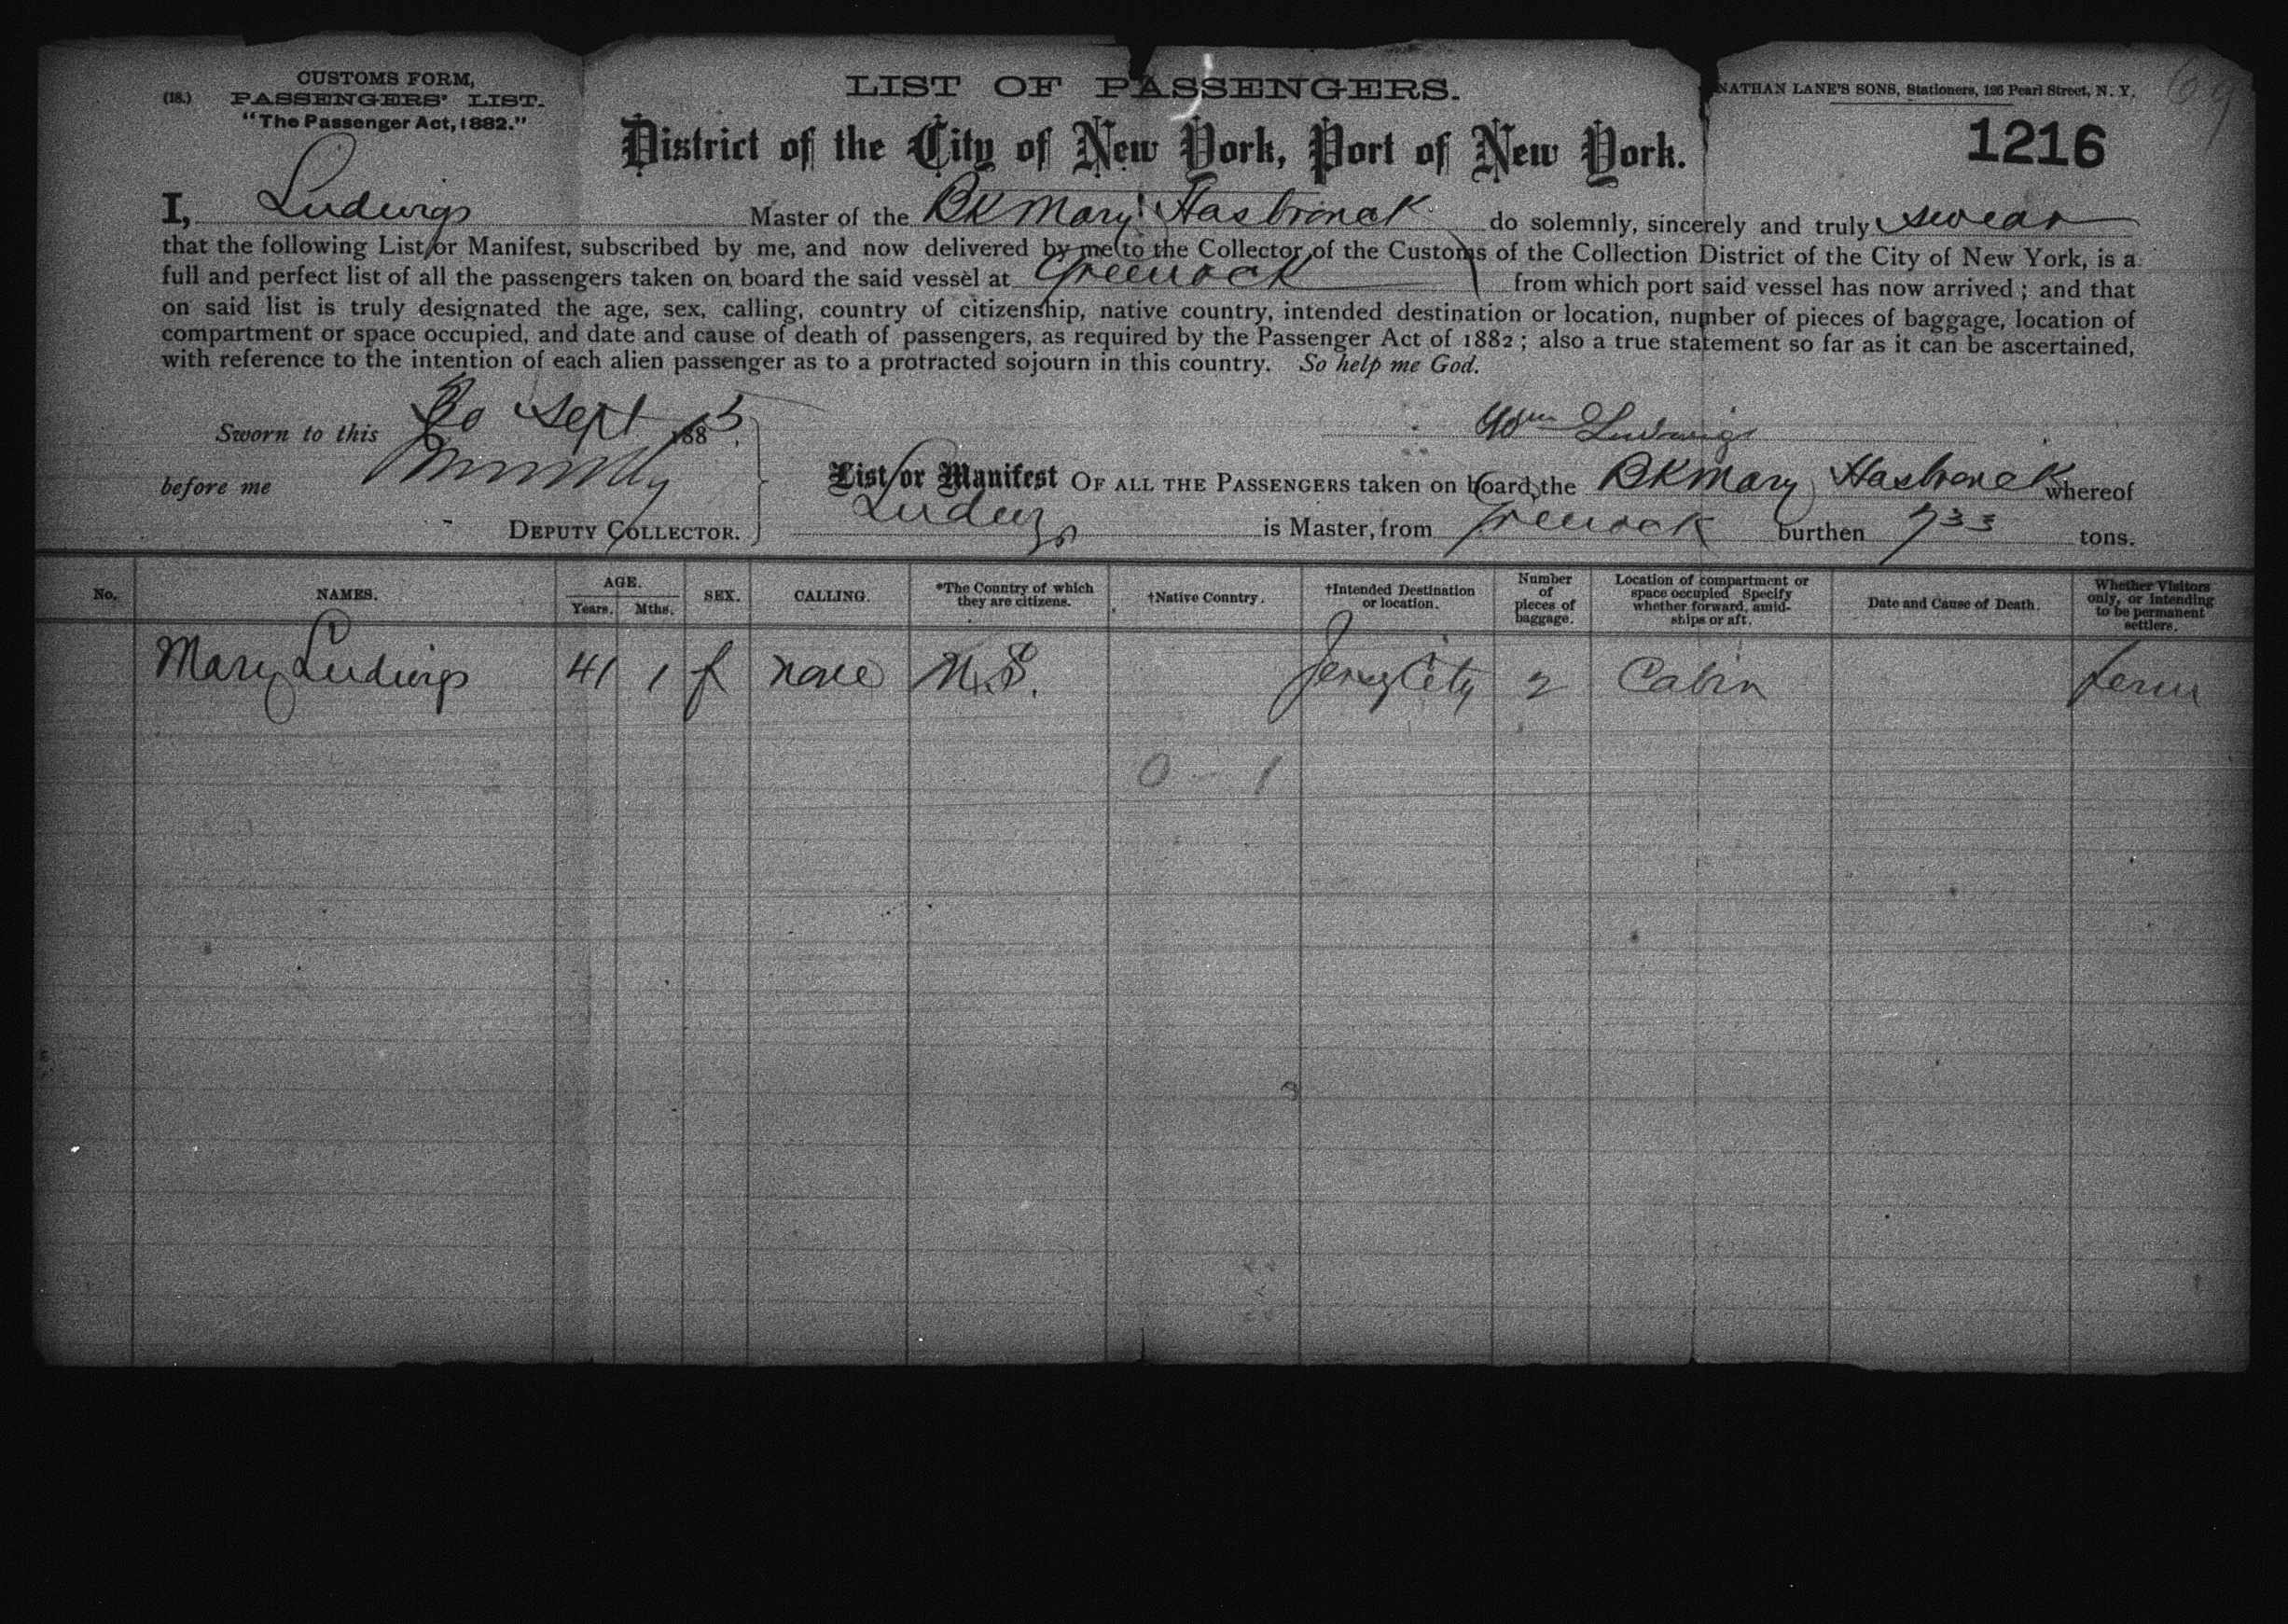 CUSTOMS FORM,
(18.) PASSENGERS' LIST.
"The Passenger Act, 1882."
LIST OF PASSENGERS.
NATHAN LANE'S SONS, Stationers, 126 Pearl Street, N. Y.
69
District of the City of New York, Port of New York.
1216
I, Ludwigs Master of the BK Mary Hasbronck do solemnly, sincerely and truly swear
that the following List or Manifest, subscribed by me, and now delivered by me to the Collector of the Customs of the Collection District of the City of New York, is a
full and perfect list of all the passengers taken on board the said vessel at Greenock from which port said vessel has now arrived; and that
on said list is truly designated the age, sex, calling, country of citizenship, native country, intended destination or location, number of pieces of baggage, location of
compartment or space occupied, and date and cause of death of passengers, as required by the Passenger Act of 1882; also a true statement so far as it can be ascertained,
with reference to the intention of each alien passenger as to a protracted sojourn in this country. So help me God.
Sworn to this 30 Sept 1885.
Wm Ludwigs
before me
List or Manifest OF ALL THE PASSENGERS taken on board the BK Mary Hasbronck whereof
DEPUTY COLLECTOR.
Ludwigs is Master, from Greenock burthen 733 tons.
No. NAMES. AGE. Years. Mths. SEX. CALLING. *The Country of which they are citizens. †Native Country. †Intended Destination or location. Number of pieces of baggage. Location of compartment or space occupied Specify whether forward, amid-ships or aft. Date and Cause of Death. Whether Visitors only, or intending to be permanent settlers.
Mary Ludwigs 41 1 f none U.S. Jersey City 2 Cabin
0 - 1